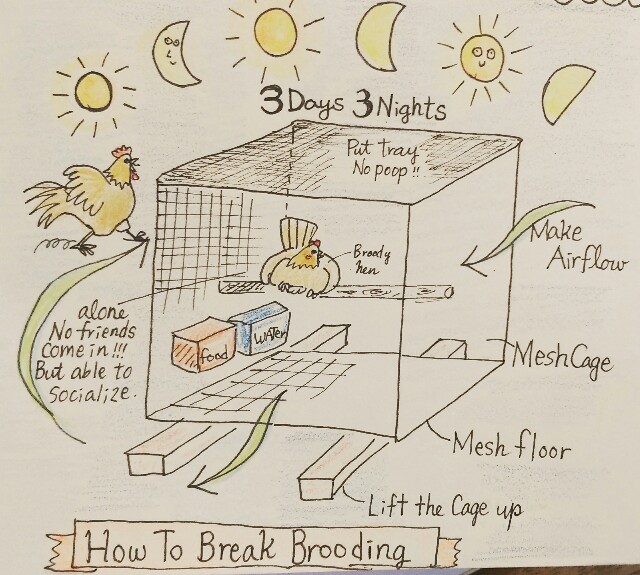 3 Days 3 Nights
Put tray
No poop!!
Make
Airflow
Broody
hen
alone
No friends
Come in!!!
But able to
Socialize.
food
WATER
Mesh Cage
Mesh floor
Lift the Cage up
How To Break Brooding